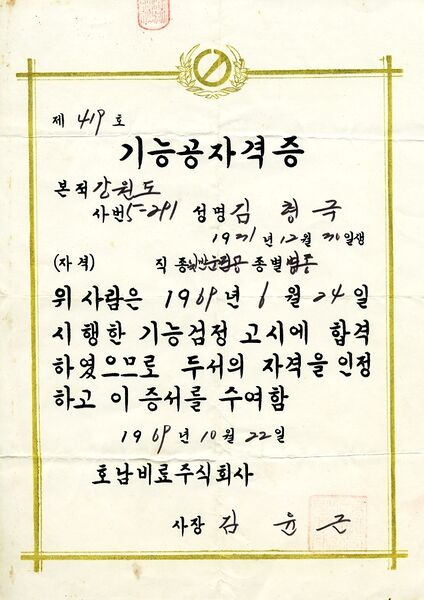 제 419 호
기능공자격증
본적 강원도
사번 5-291 성명 김 형 국
1931년 12월 30일생
(자격) 직종 종별
위 사람은 1969년 6월 24일
시행한 기능검정 고시에 합격
하였으므로 두서의 자격을 인정
하고 이 증서를 수여함
1969년 10월 22일
호남비료주식회사
사장 김 윤 근